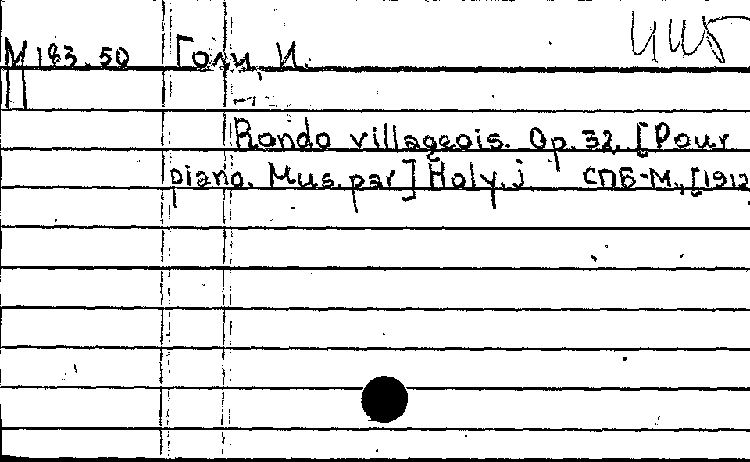 М 183.50 Голи, И.
Rondo villageois. Op. 32. [Pour
piano. Mus. par] Holy. j СПБ-М., [1912